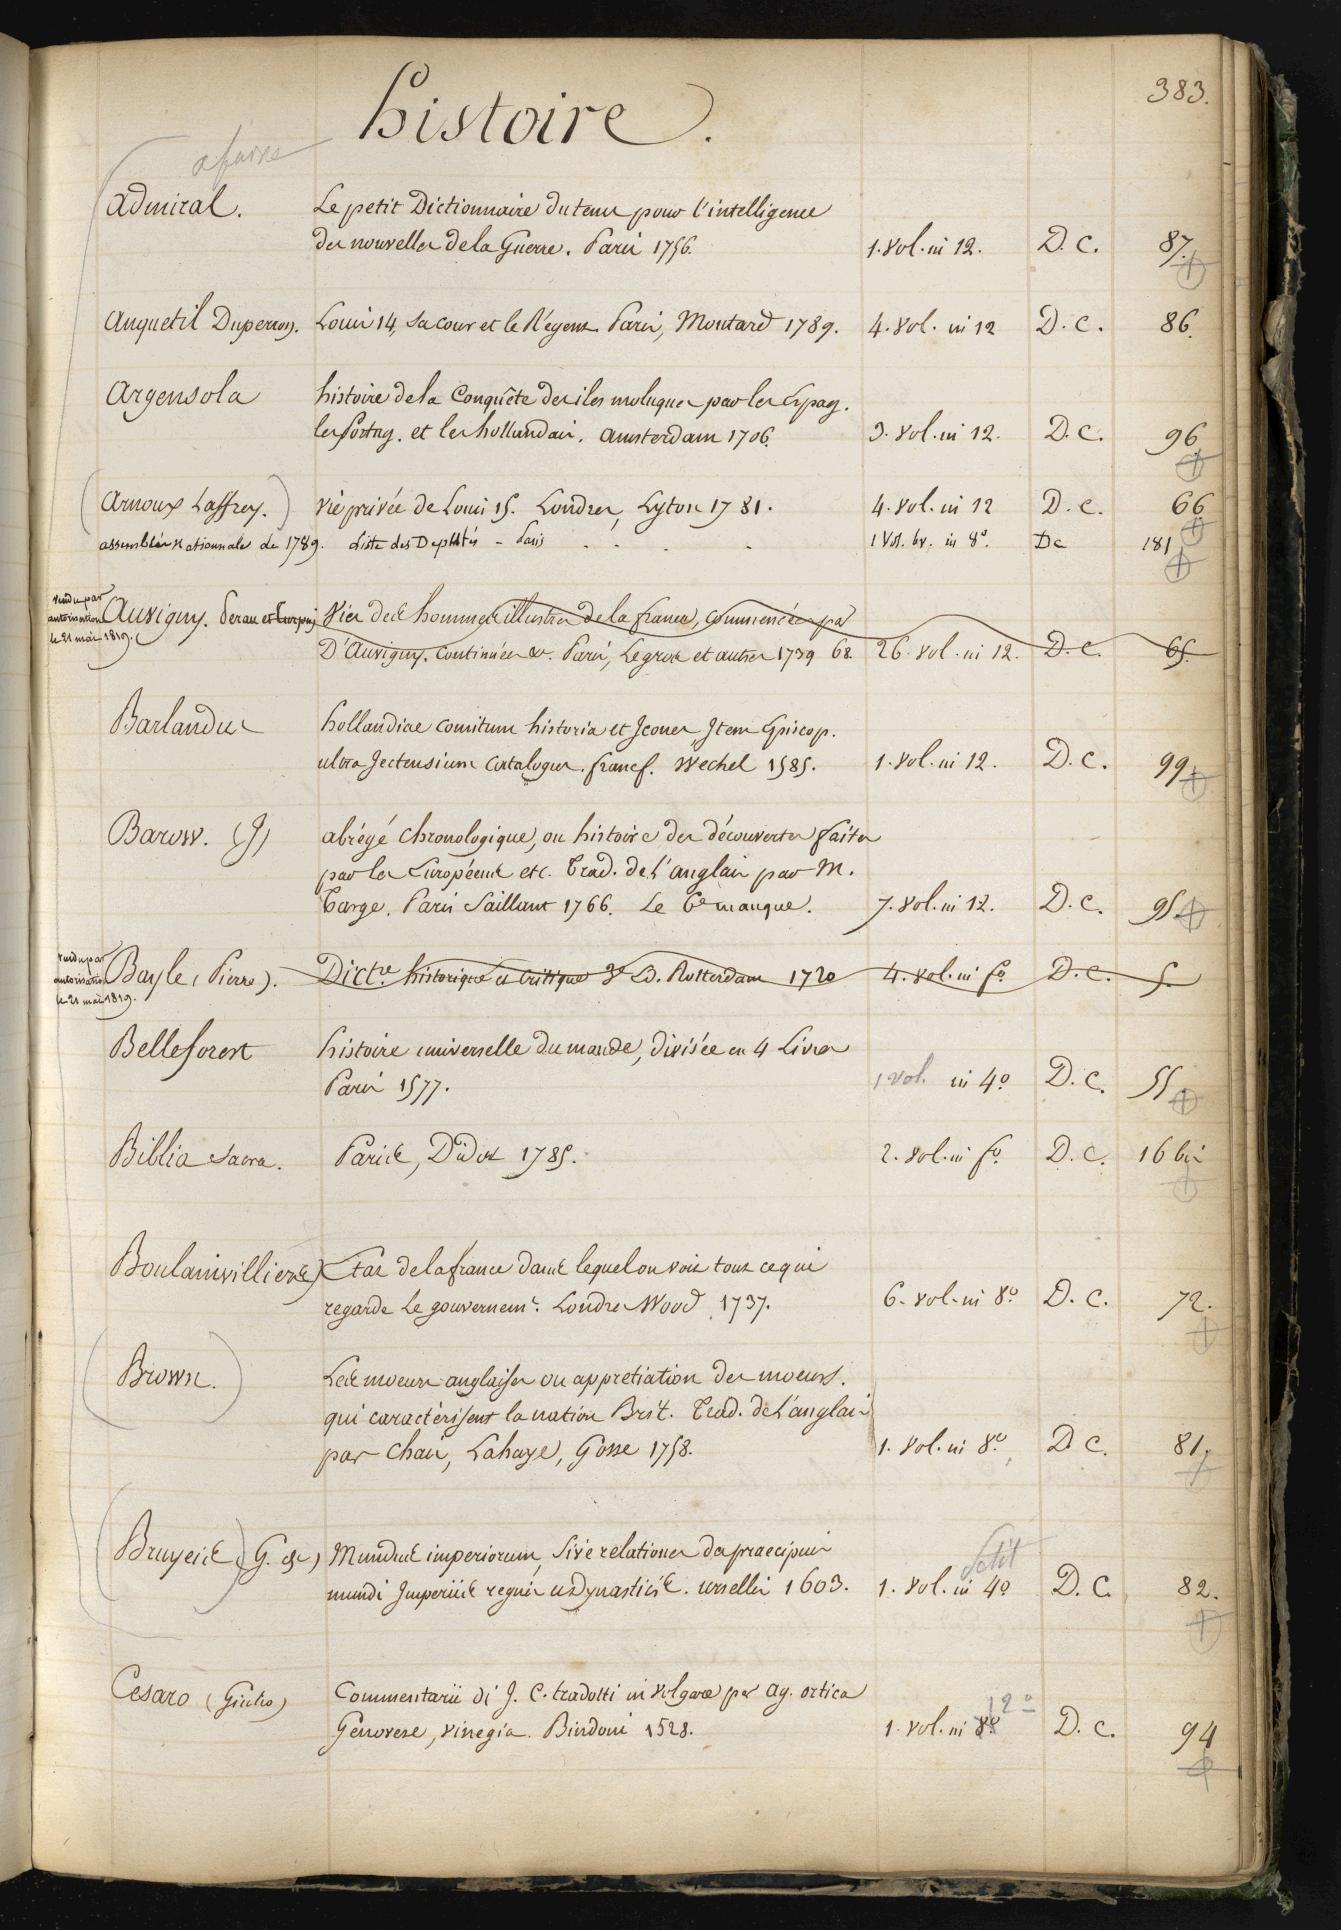 383.
histoire.
a faire
Admiral. Le petit Dictionnaire du tems pour l'intelligence
des nouvelles de la Guerre. Paris 1756. 1. vol. in 12. D. C. 87.
Anquetil Duperron. Louis 14, sa cour et le Régent. Paris, Moutard 1789. 4. vol. in 12 D. C. 86.
Argensola histoire de la Conquête des iles moluques par les Espag.
les Portug. et les hollandais. Amsterdam 1706. 3. vol. in 12. D. C. 96
(Arnoux Laffrey.) vie privée de Louis 15. Londres, Lyton 1781. 4. vol. in 12 D. C. 66
assemblée Nationale de 1789. Liste des Députés - Paris . . . . 1 Vol. br. in 8°. Dc 181
vendu par
autorisation
le 21 mai 1819.
Auvigny. Perau et Turpin Vies des hommes illustres de la france, commencées par
D'Auvigny. Continuées &c. Paris, Legras et autres 1739 68. 26. vol. in 12. D. C. 65.
Barlandus hollandiae comitum historia et Icones, Item Episcop.
ultra Jectensium Catalogus. francf. Wechel 1585. 1. vol. in 12. D. C. 99
Barow. (J) abrégé Chronologique, ou histoire des découvertes faites
par les Européens etc. Trad. de l'anglais par M.
Targe. Paris Saillant 1766. Le 6e manque. 7. vol. in 12. D. C. 95
vendu par
autorisation
le 21 mai 1819.
Bayle (Pierre). Dictre. historique et Critique 3e Ed. Rotterdam 1720 4. vol. in fo. D. C. 5.
Belleforest histoire universelle du monde, divisée en 4 Livres
Paris 1577. 1 vol. in 4° D. C. 55.
Biblia Sacra. Pariis, Didot 1785. 2. vol. in fo. D. C. 16 bis
Boulainvilliers) Etat de la france dans lequel on voit tout ce qui
regarde Le gouvernemt. Londres Wood 1737. 6. vol. in 8° D. C. 72.
(Brown.) Les moeurs anglaises ou appretiation des moeurs.
qui caractérisent la nation Brit. Trad. de l'anglais
par Chais, Lahaye, Gosse 1758. 1. vol. in 8°. D. C. 81.
(Bruyeis) G. de) Mundus imperiorum, sive relationes de praecipuis
petit
mundi Imperiis regnis us dynastiis. ursellis 1603. 1. vol. in 4° D. C. 82.
Cesaro (Giulio) Commentarii di J. C. tradotti in volgare per Ag. ortica
12°
Genovese, vinegia. Bindoni 1528. 1. vol. in 8° D. C. 94